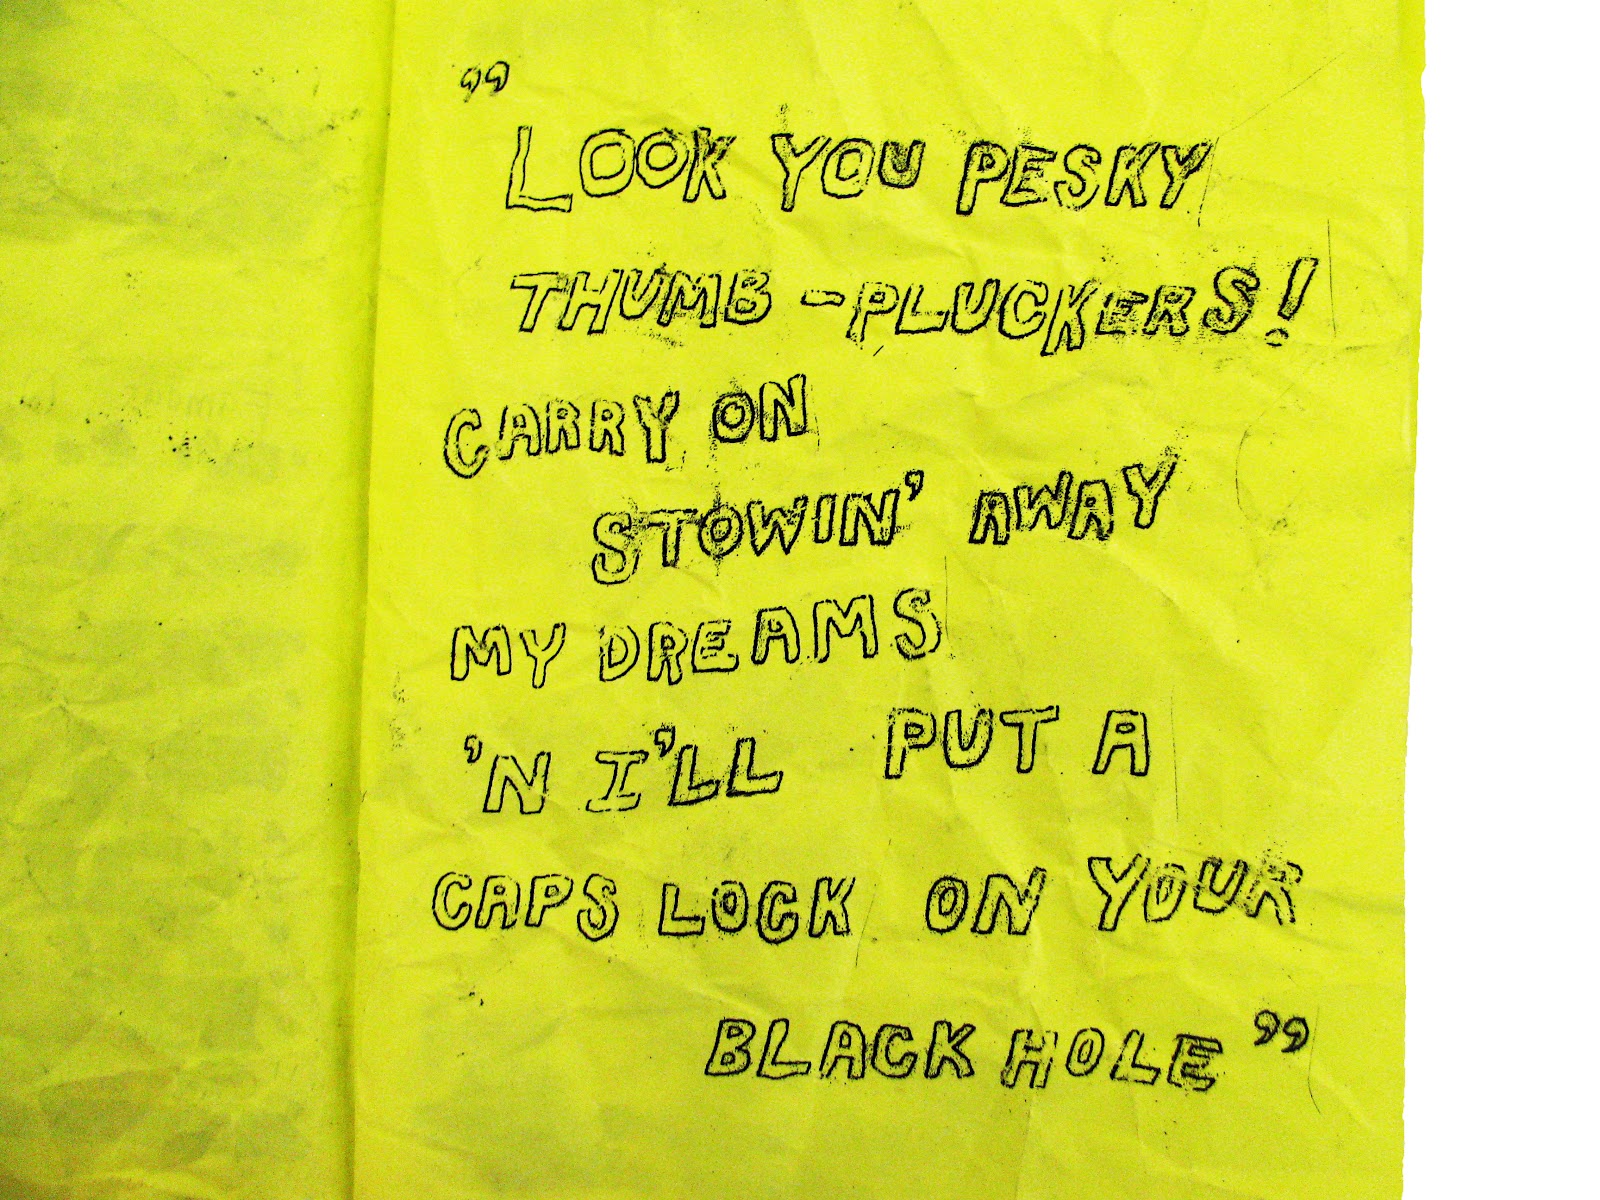 ”
LOOK YOU PESKY
THUMB-PLUCKERS!
CARRY ON
STOWIN’ AWAY
MY DREAMS
’N I’LL PUT A
CAPS LOCK ON YOUR
BLACK HOLE”